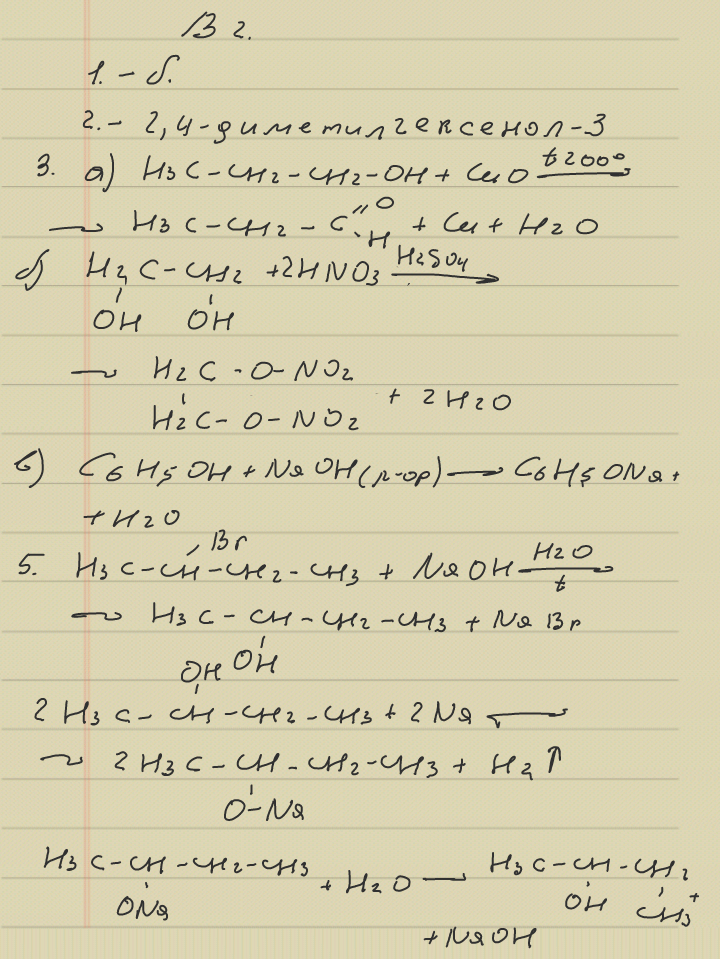 В 2.
1. - б.
2. - 2,4-диметилгексенол-3
3. а) H₃C-CH₂-CH₂-OH + CuO t200° →
→ H₃C-CH₂-C=O-H + Cu + H₂O
б) H₂C-CH₂ + 2HNO₃ H₂SO₄ →
OH OH
→ H₂C-O-NO₂
H₂C-O-NO₂ + 2H₂O
в) C₆H₅OH + NaOH(р-ор) → C₆H₅ONa +
+ H₂O
Br
5. H₃C-CH-CH₂-CH₃ + NaOH H₂O → t
→ H₃C-CH-CH₂-CH₃ + NaBr
OH
OH
2H₃C-CH-CH₂-CH₃ + 2Na →
→ 2H₃C-CH-CH₂-CH₃ + H₂↑
O-Na
H₃C-CH-CH₂-CH₃ + H₂O → H₃C-CH-CH₂
ONa OH CH₃ +
+ NaOH